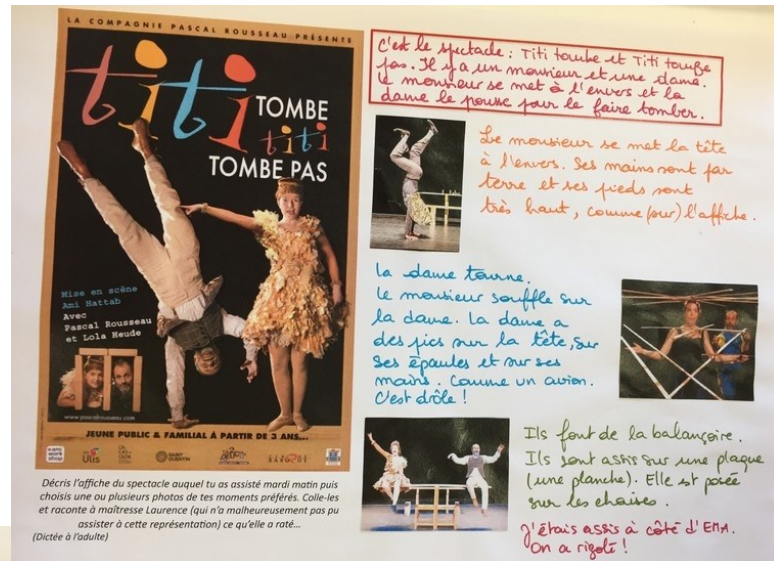 LA COMPAGNIE PASCAL ROUSSEAU PRÉSENTE
titi TOMBE
titi
TOMBE PAS
Mise en scène
Ami Hattab
Avec
Pascal Rousseau
et Lola Heude
www.pascalrousseau.com
JEUNE PUBLIC & FAMILIAL À PARTIR DE 3 ANS...
Ulis
SAINT QUENTIN
Décris l'affiche du spectacle auquel tu as assisté mardi matin puis
choisis une ou plusieurs photos de tes moments préférés. Colle-les
et raconte à maîtresse Laurence (qui n'a malheureusement pas pu
assister à cette représentation) ce qu'elle a raté...
(Dictée à l'adulte)
C'est le spectacle : Titi tombe et Titi tombe
pas. Il y a un monsieur et une dame.
Le monsieur se met à l'envers et la
dame le pousse pour le faire tomber.
Le monsieur se met la tête
à l'envers. Ses mains sont par
terre et ses pieds sont
très haut, comme (sur) l'affiche.
La dame tourne.
Le monsieur souffle sur
la dame. La dame a
des pics sur la tête, sur
ses épaules et sur ses
mains. Comme un avion.
C'est drôle !
Ils font de la balançoire.
Ils sont assis sur une plaque
(une planche). Elle est posée
sur les chaises.
J'étais assis à côté d'EMA.
On a rigolé !